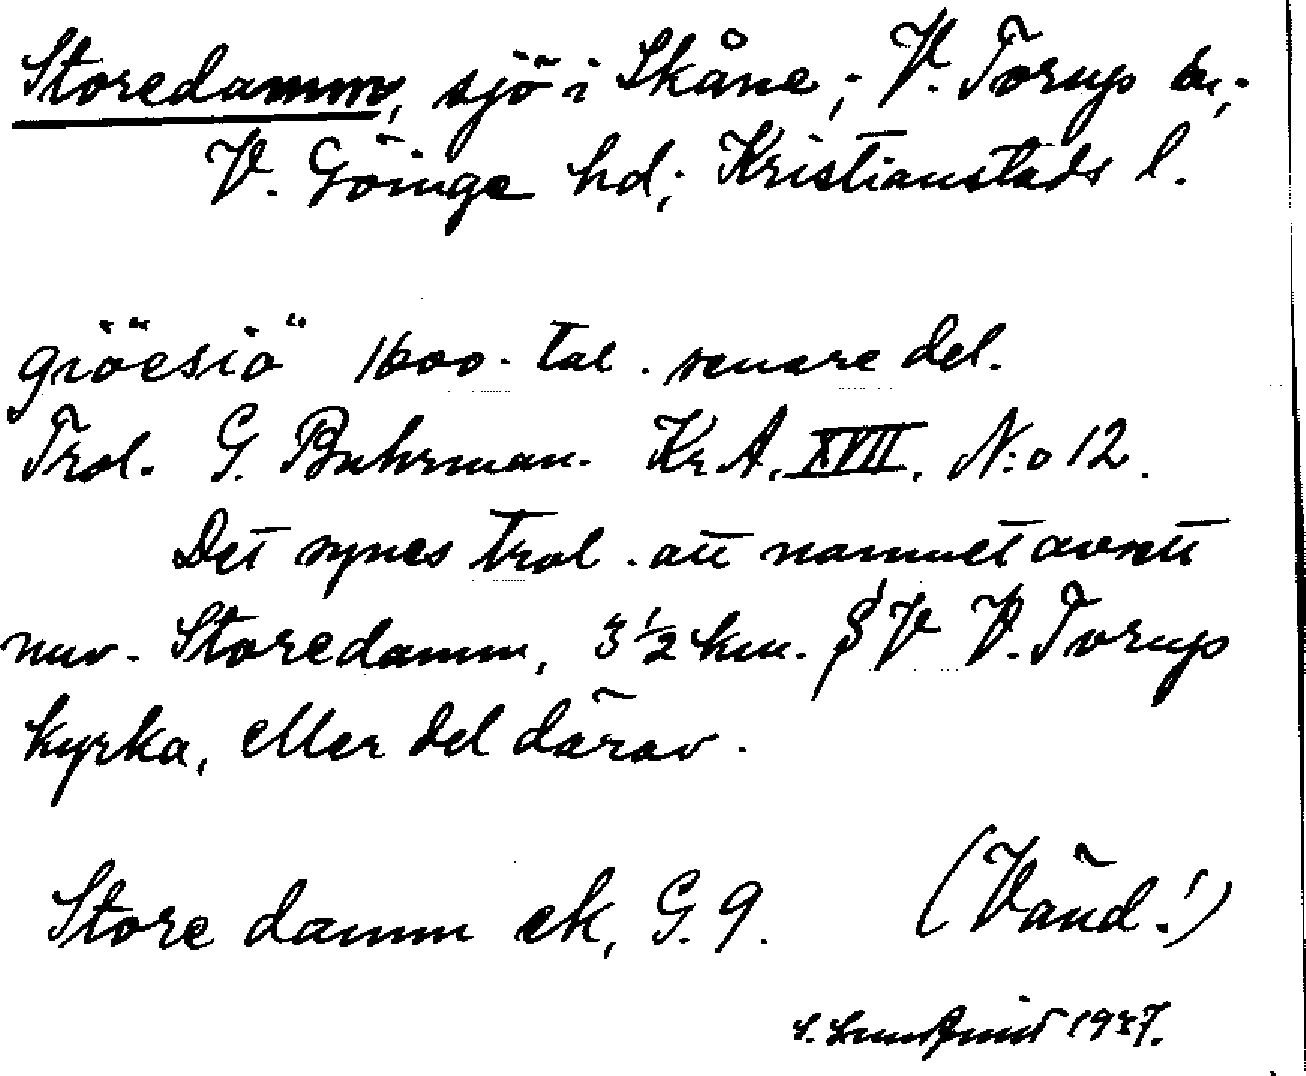 Storedamm, sjö i Skåne; V. Torups sn;
V. Göinge hd; Kristianstads l.
giöesiö 1600-tal. senare del.
Trol. G. Buhrman. Kr.A. XVII. N:o 12.
Det synes trol. att namnet avsett
nuv. Storedamm, 3 1/2 km. V V. Torups
kyrka, eller del därav.
Store damm ek, G. 9. (Vänd!)
S. Lundquist 1937.